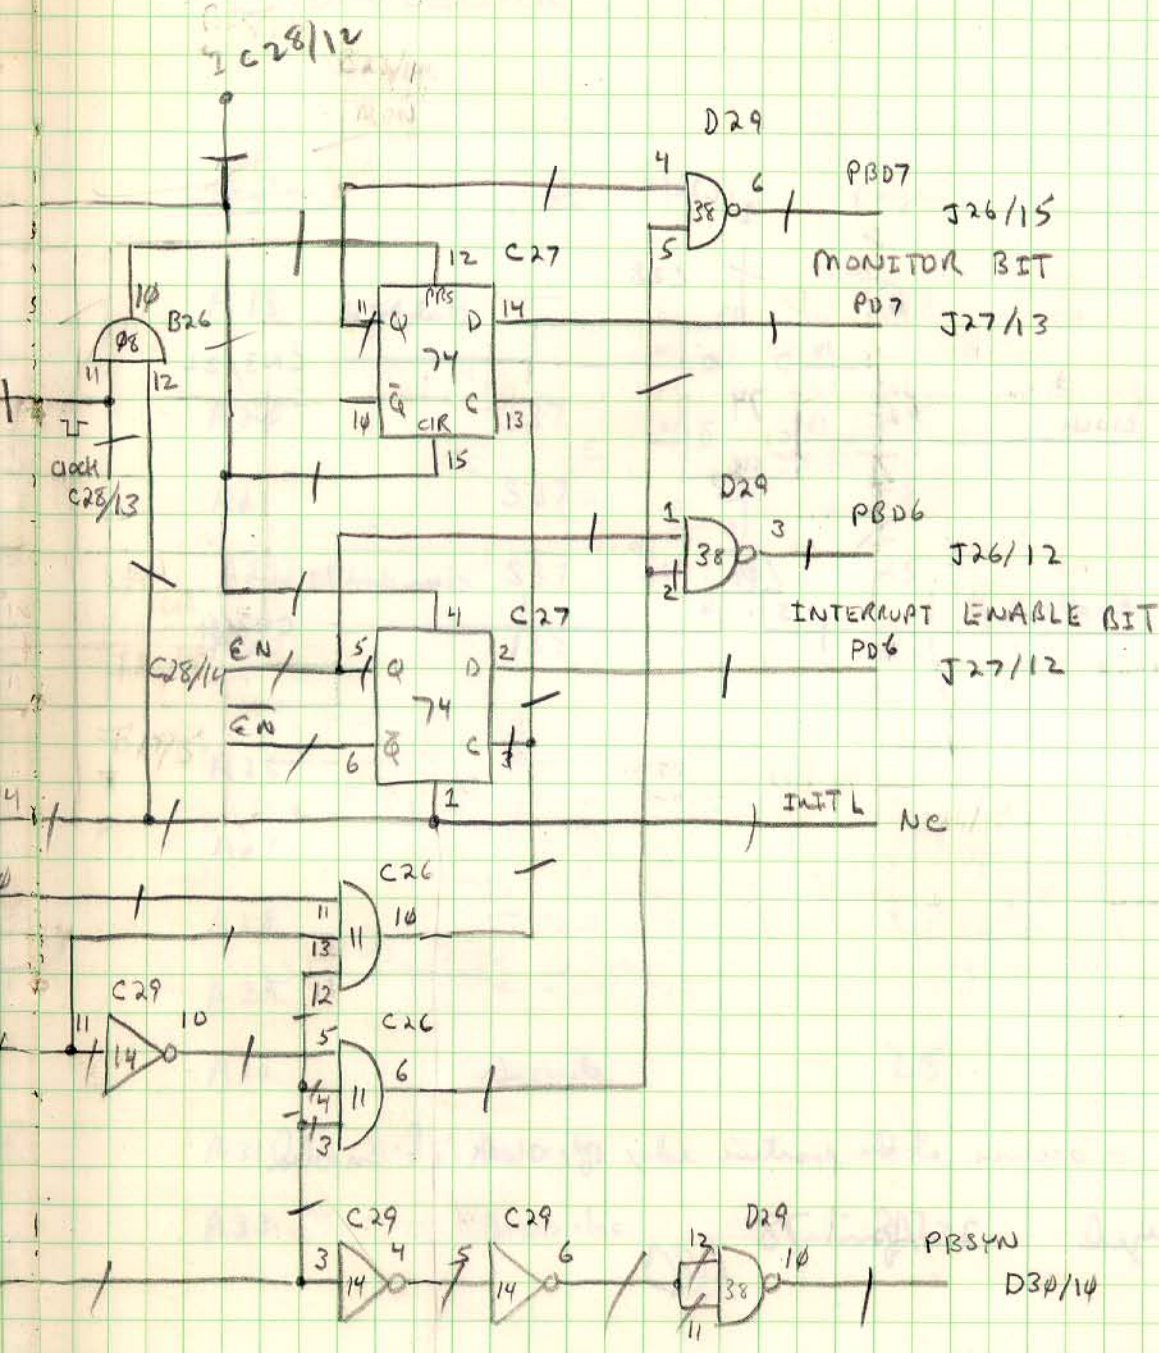 C28/12
D29
4
6
PBD7
38
J26/15
5
MONITOR BIT
12
C27
PRS
PD7
1φ
B26
11
Q
D
14
J27/13
φ8
74
11
12
1φ
Q̅
C
13
CLR
15
CLOCK
C28/13
D29
1
3
PBD6
38
J26/12
2
INTERRUPT ENABLE BIT
4
C27
PD6
C28/14
EN
5
Q
D
2
J27/12
74
E̅N̅
6
Q̅
C
3
1
4
INIT L
NC
C26
11
1φ
13
11
12
C29
11
14
10
C26
5
6
4
11
3
C29
C29
D29
3
4
5
6
12
1φ
PBSYN
14
14
38
D3φ/1φ
11